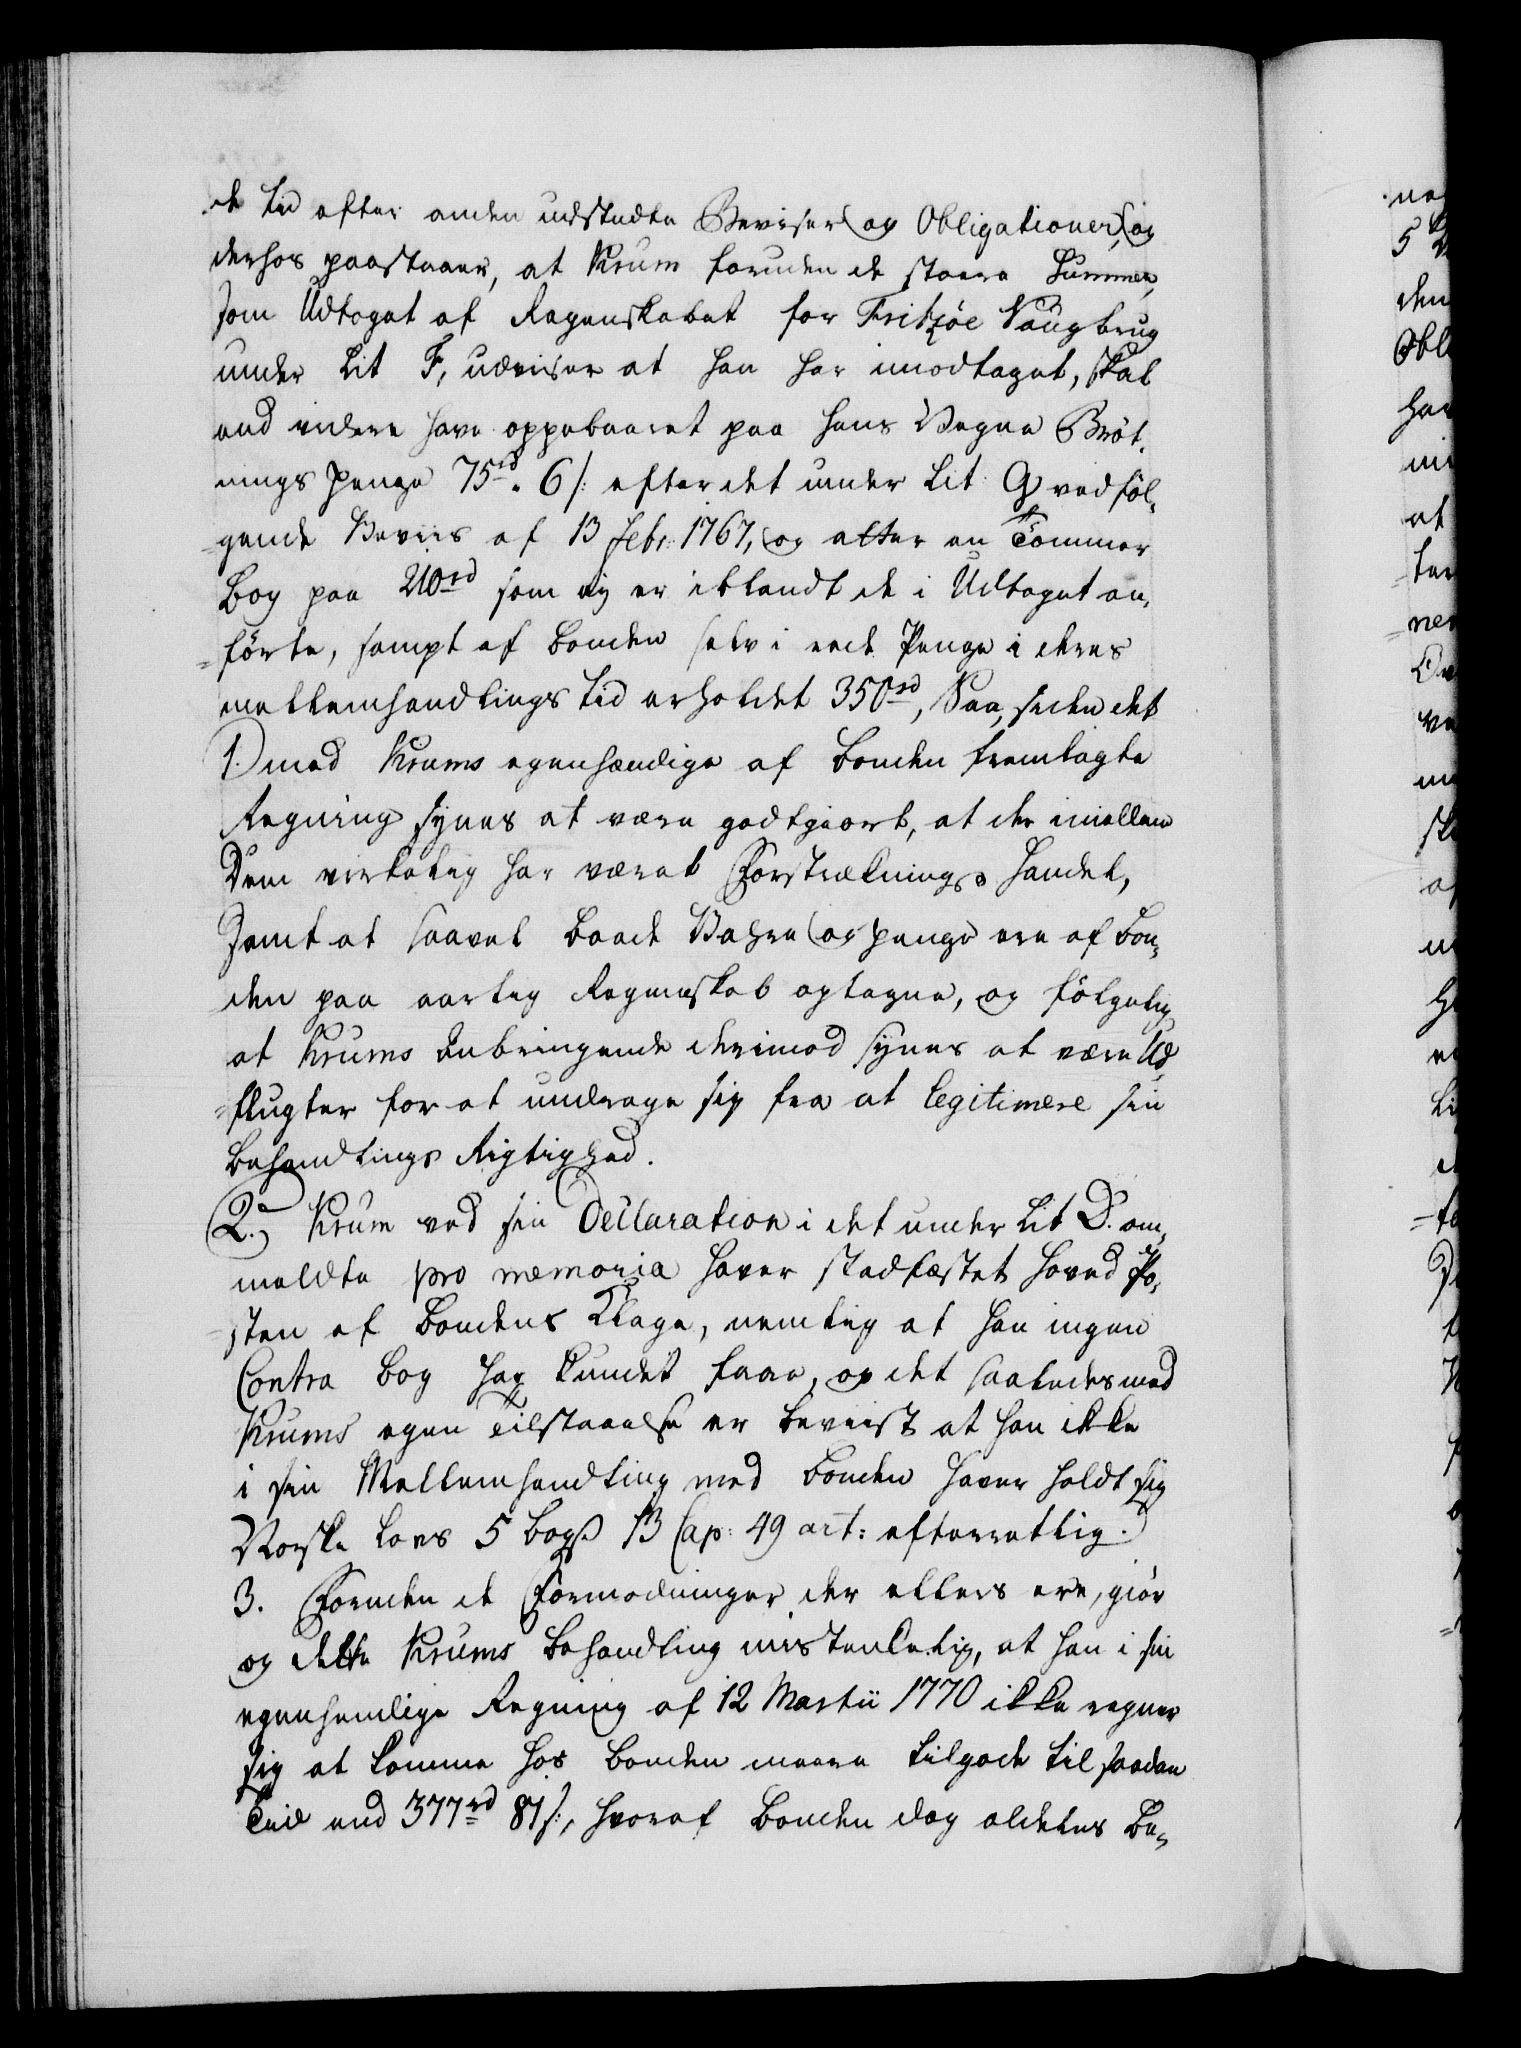 de tid efter anden udstedte Beviser og Obligationer, og
derhos paastaaer, at Krum foruden de store Summer,
som Udtoget af Regenskabet for Fritzöe Saugbrug
under Lit F, udviser at han har imodtaget, skal
end videre have oppebaaret paa hans Vegne Bröt,
nings Penge 75rd. 6 s: efter det under Lit: G vedföl-
gende Beviis af 13 Febr: 1767, og atter en Tömmer
Bog paa 210rd som ey er iblandt de i Udtoget an,
förte, sampt af Bonden selv i rede Penge i deres
mellemhandlings tid erholdet 350rd, Saa, siden det
1.) med Krums egenhændige af Bonden fremlagte
Regning synes at være godtgiort, at der imellem
Dem virkelig har været Forstræknings Handel,
samt at saavel baade Vahre og Penge ere af Bon,
den paa aarlig Regenskab optagne, og fölgelig
at Krums Anbringende derimod synes at være Ud,
flugter for at undrage sig fra at legitimere sin
Behandlings Rigtighed.
2.) Krum ved sin Declaration i det under Lit D. om,
meldte pro memoria haver stadfæstet hoved Po,
sten af Bondens Klage, nemlig at han ingen
Contra Bog har kundet faae, og det saaledes med
Krums egen Tilstaaelse er beviist at han ikke
i sin Mellemhandling med Bonden haver holdt sig
Norske Lovs 5 Bogs 13 Cap: 49 art: efterretlig.
3. Foruden de Formodninger der ellers ere, giör
og dette Krums Behandling mistenkelig, at han i sin
egenhendige Regning af 12 Martii 1770 ikke regner
sig at komme hos Bonden meere tilgode til saadan
Tiid end 377rd 81 s:, hvoraf Bonden dog aldeles be-